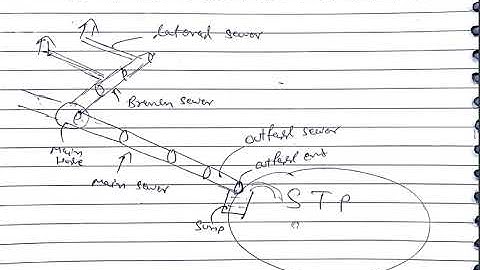 Lateral sewer
Branch sewer
outfall sewer
Main
Hole
outfall end
Main sewer
STP
Sump